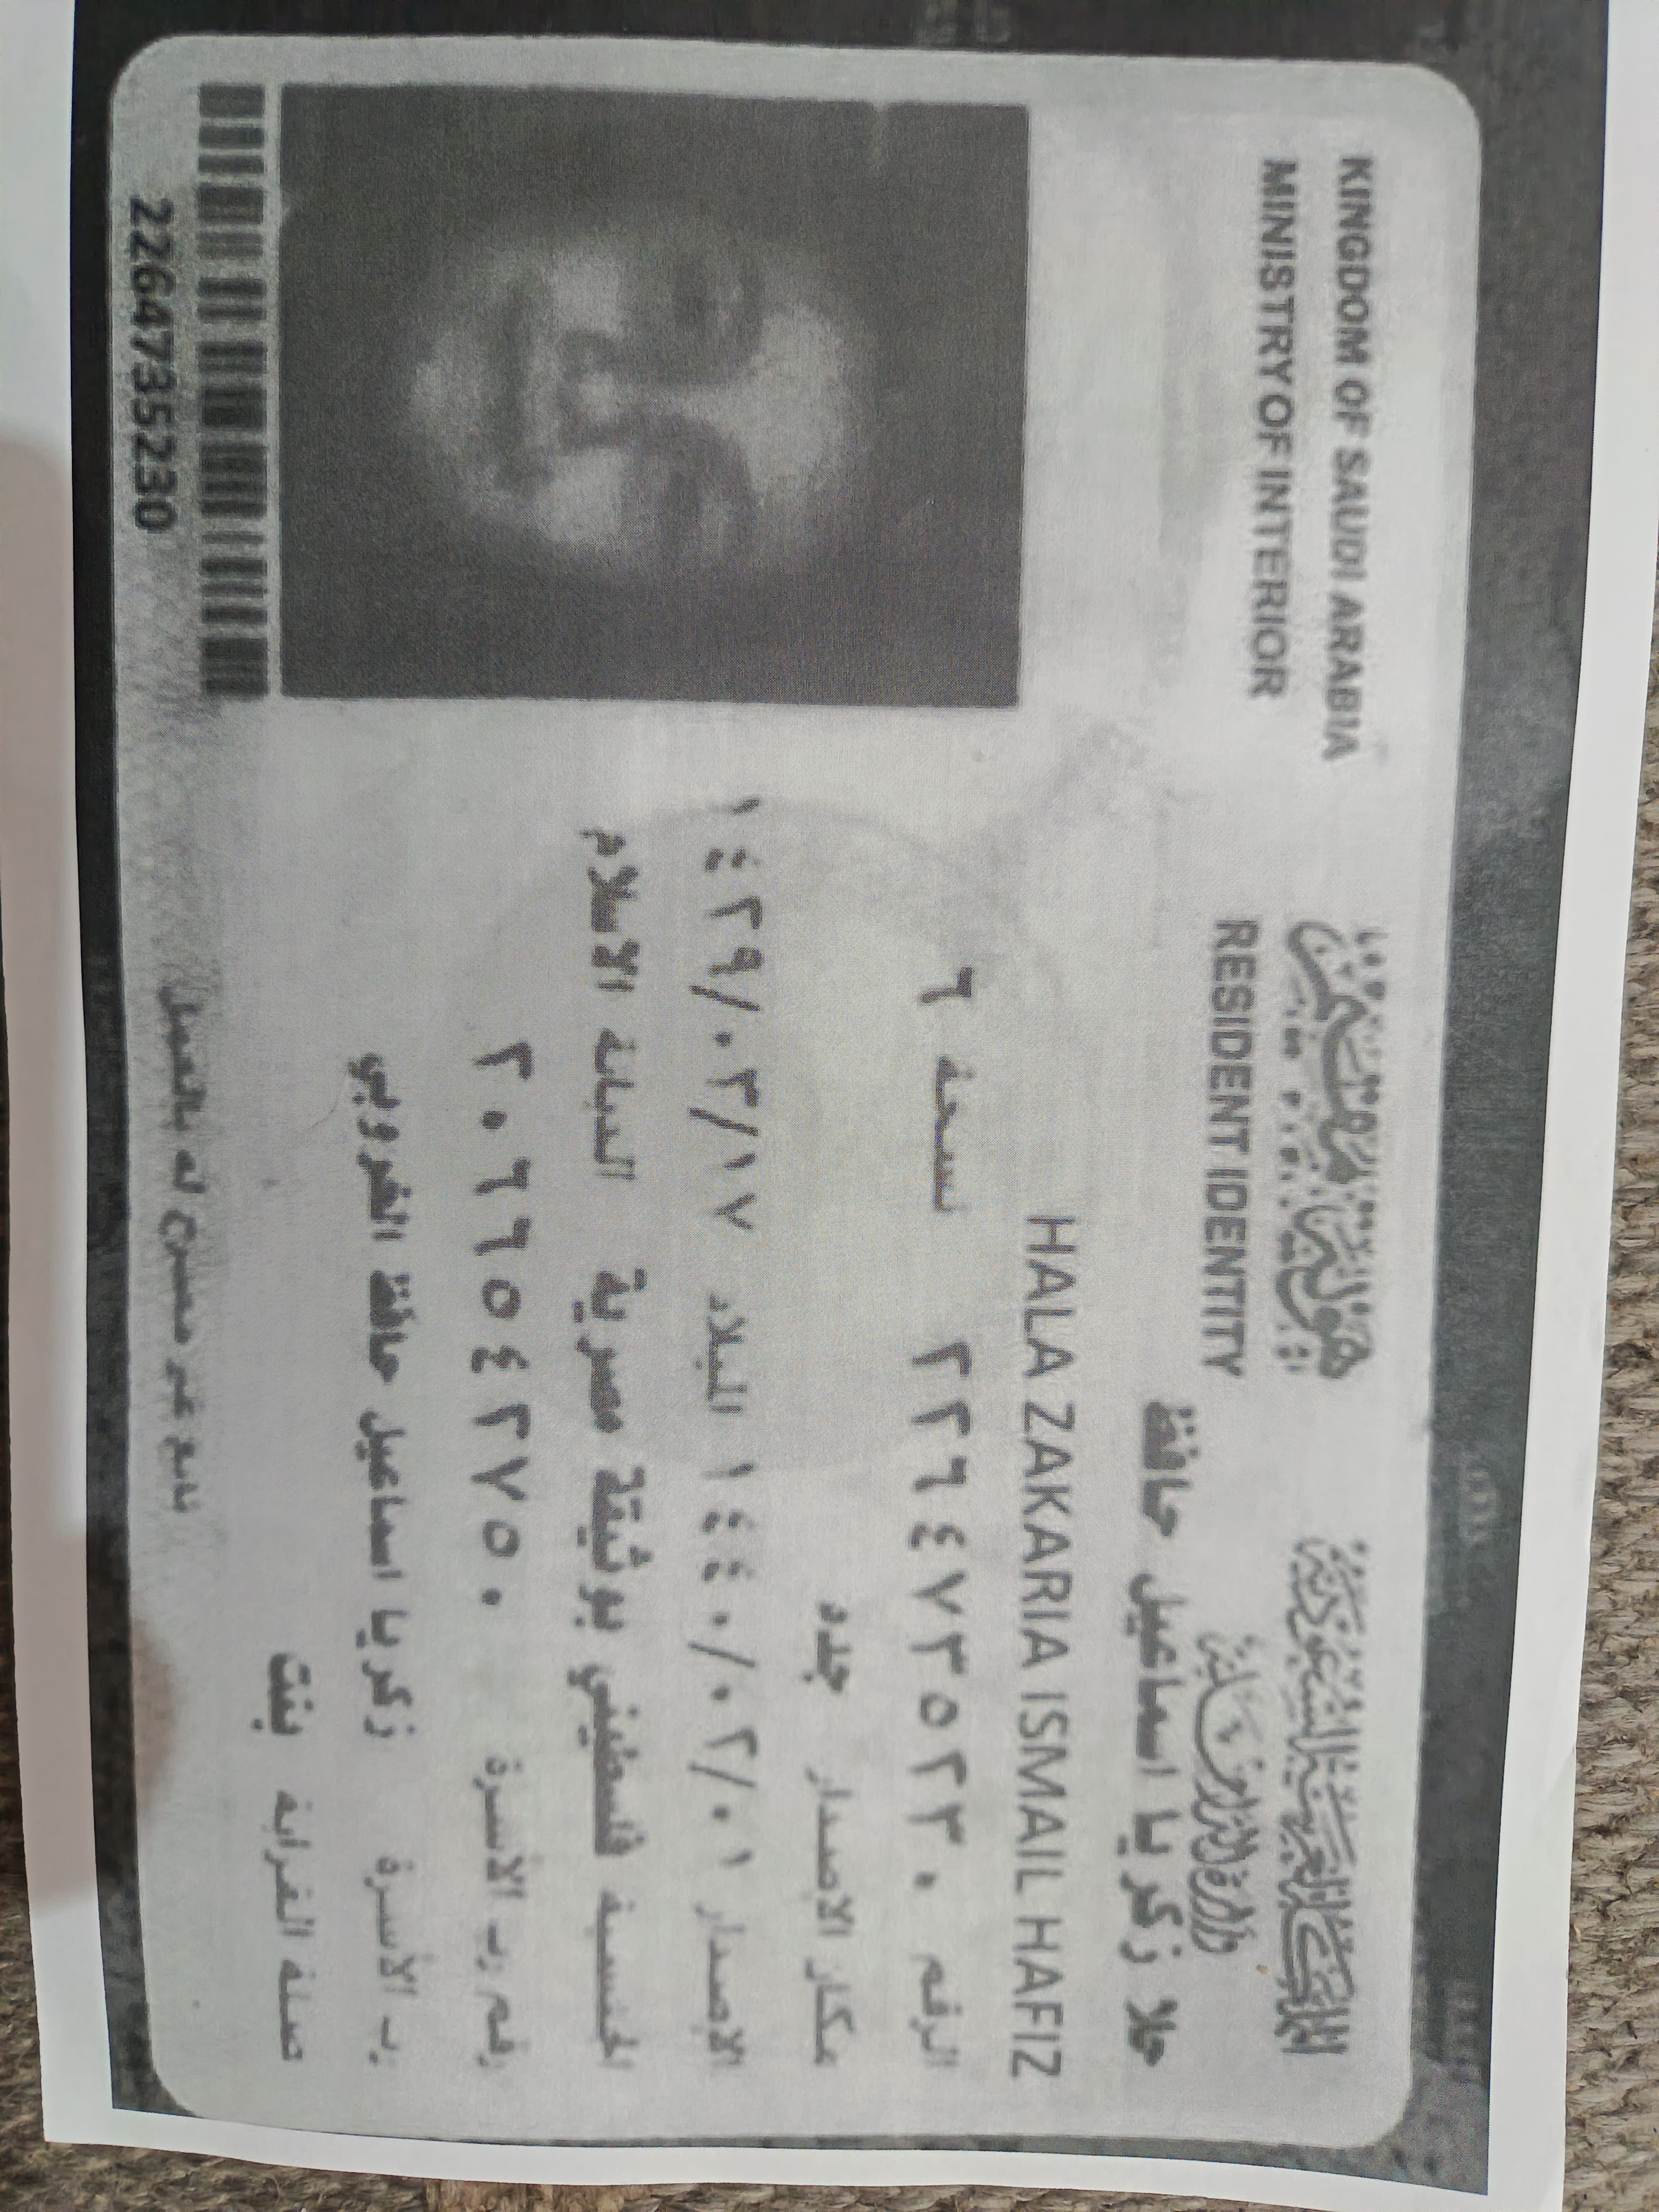 KINGDOM OF SAUDI ARABIA
MINISTRY OF INTERIOR
هوية مقيم
RESIDENT IDENTITY
المملكة العربية السعودية
وزارة الداخلية
حلا زكريا اسماعيل حافظ
HALA ZAKARIA ISMAIL HAFIZ
الرقم ٢٢٦٤٧٣٥٢٣٠ نسخة ٦
مكان الاصدار جدد
الاصدار ١٤٤٠/٠٢/٠١ الميلاد ١٤٢٩/٠٣/١٧
الجنسية فلسطيني بوثيقة مصرية الديانة الاسلام
رقم رب الأسرة ٢٠٦٦٥٤٢٧٥٠
رب الأسرة زكريا اسماعيل حافظ
صلة القرابة بنت
تابع غير مصرح له بالعمل
2264735230